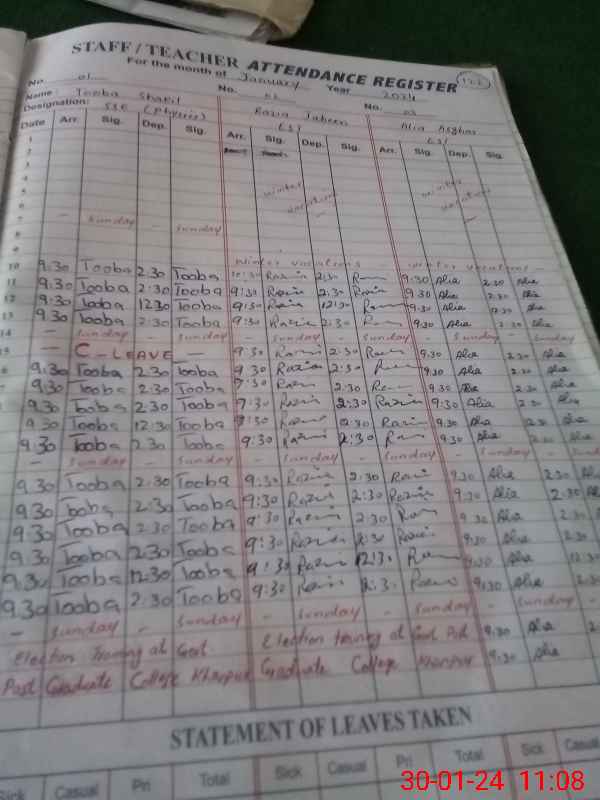 STAFF / TEACHER ATTENDANCE REGISTER
122
For the month of January Year 2024
No. 01 No. 02 No. 03
Name: Tooba Shakil Razia Jabeen Alia Asghar
Designation: SSE (Physics)
Date Arr. Sig. Dep. Sig. Arr. Sig. Dep. Sig. Arr. Sig. Dep. Sig.
1
2
3
4
5 winter winter
6 vacations vacation
7 - Sunday - Sunday
8
9
winter vacations - winter vacations -
10 9:30 Tooba 2:30 Tooba Razia 2:30 9:30 Alia 2:30 Alia
11 9:30 Tooba 2:30 Tooba 9:30 Razia 2:30 Razia 9:30 Alia 2:30 Alia
12 9:30 Tooba 12:30 Tooba 9:30 Razia 12:30 9:30 Alia Alia
13 9:30 Tooba 2:30 Tooba 9:30 Razia 2:30 9:30 Alia 2:30 Alia
14 - Sunday - Sunday - Sunday - Sunday - Sunday - Sunday
15 - C-LEAVE - 9:30 2:30 9:30 Alia 2:30 Alia
6 9:30 Tooba 2:30 Tooba 9:30 Razia 2:30 9:30 Alia 2:30 Alia
7 9:30 Tooba 2:30 Tooba Razia 2:30 9:30 Alia 2:30 Alia
9:30 Tooba 2:30 Tooba Razia 2:30 Razia 9:30 Alia 2:30 Alia
9:30 Tooba 12:30 Tooba Razia Razia 9:30 Alia Alia
9:30 Tooba 2:30 Tooba 9:30 2:30 9:30 Alia 2:30 Alia
- Sunday - Sunday - Sunday - Sunday - Sunday -
9:30 Tooba 2:30 Tooba 9:30 Razia 2:30 Razia 9:30 Alia 2:30 Alia
9:30 Tooba 2:30 Tooba 9:30 Razia 2:30 Razia 9:30 Alia 2:30
9:30 Tooba 2:30 Tooba 9:30 Razia 2:30 9:30 Alia 2:30
9:30 Tooba 2:30 Tooba 9:30 Razia 2:30 Razia 9:30 Alia 2:30
9:30 Tooba 12:30 Tooba 9:30 Razia 12:30 9:30 Alia 12:30
9:30 Tooba 2:30 Tooba 9:30 Razia 2:30 Razia 9:30 Alia 2:30
- Sunday - Sunday - Sunday - Sunday - Sunday -
Election Training at Govt Election training at Govt Post 9:30 Alia 2:30
Post Graduate College Khanpur Graduate College Khanpur 9:30 Alia
STATEMENT OF LEAVES TAKEN
Sick Casual Pri Total Sick Casual Pri Total Sick Casual
30-01-24 11:08